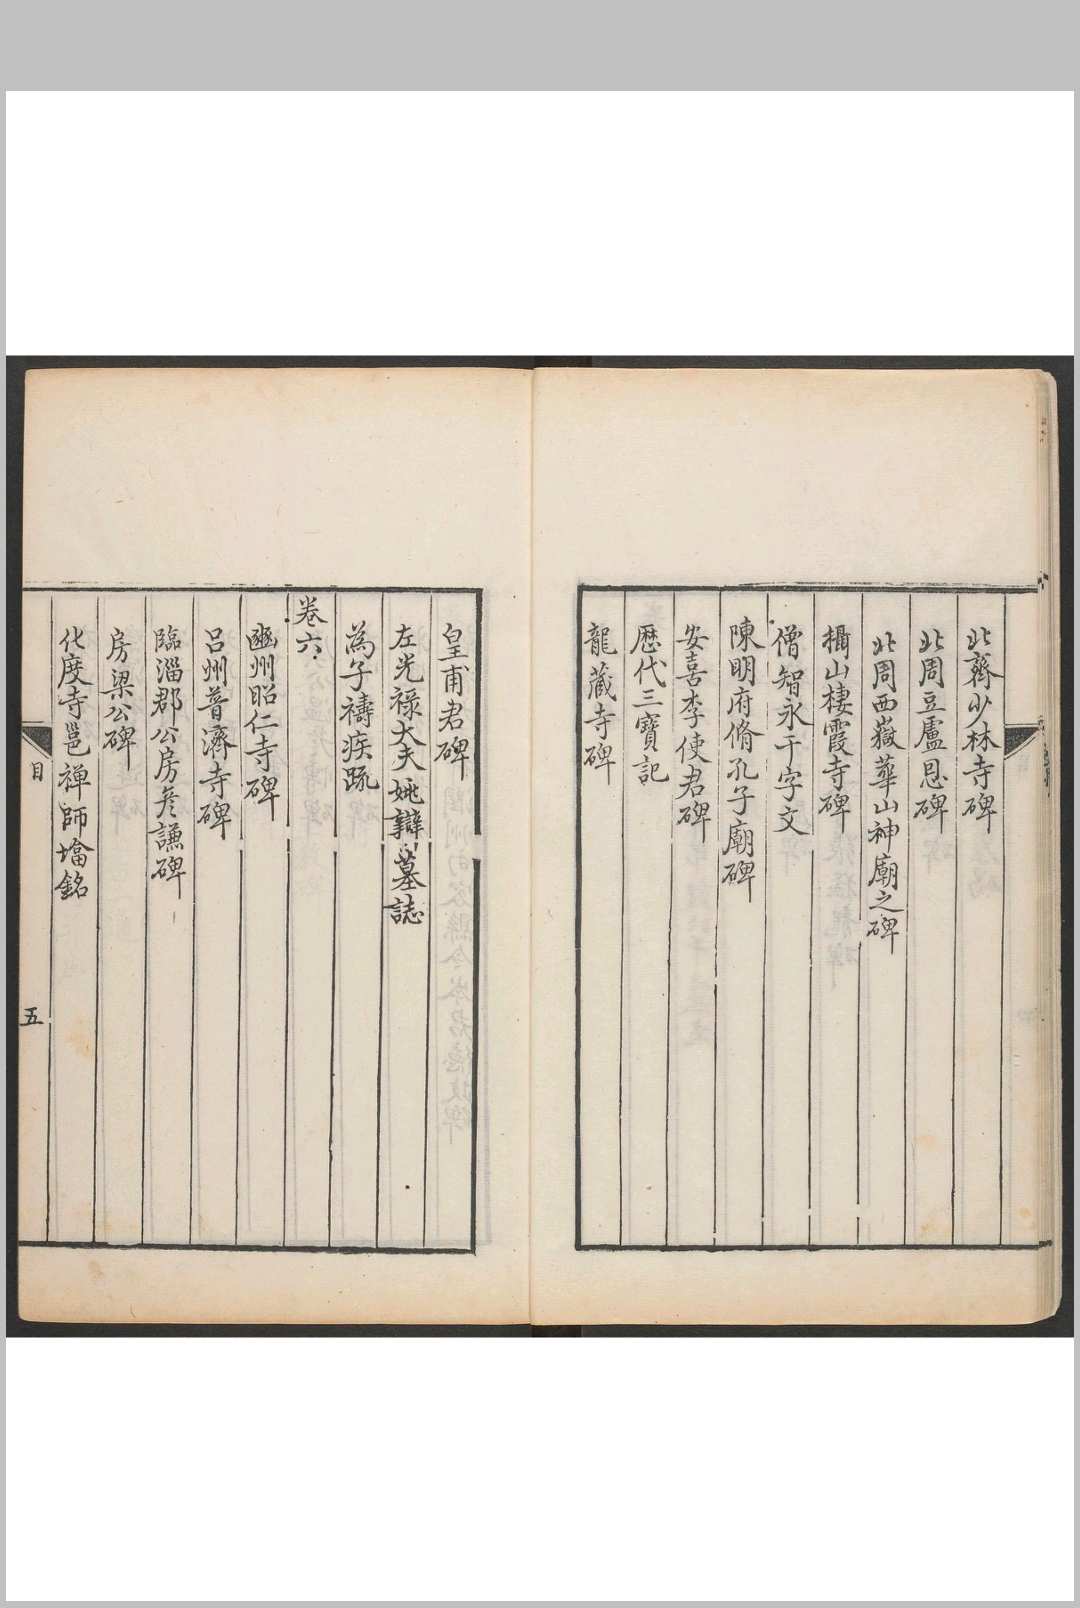 北齊少林寺碑
北周豆盧恩碑
北周西嶽華山神廟之碑
攝山棲霞寺碑
僧智永千字文
陳明府脩孔子廟碑
安喜李使君碑
歷代三寶記
龍藏寺碑
皇甫君碑
左光祿大夫姚辯墓誌
為子禱疾疏
卷六
豳州昭仁寺碑
呂州普濟寺碑
臨淄郡公房彥謙碑
房梁公碑
化度寺邕禪師墖銘
目
五